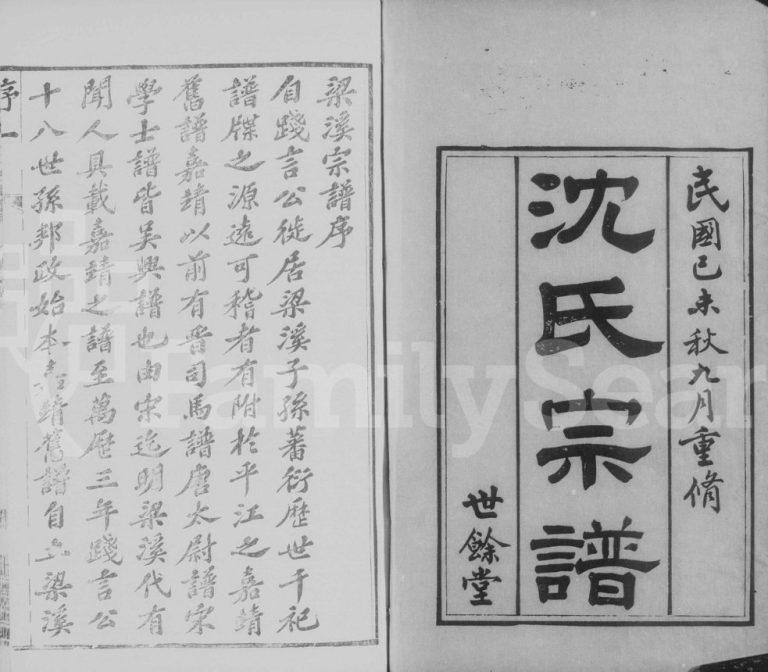 民國己未秋九月重脩
沈氏宗譜
世餘堂
梁溪宗譜序
自踐言公徙居梁溪子孫蕃衍歷世千祀
譜牒之源遠可稽者有附於平江之嘉靖
舊譜嘉靖以前有晋司馬譜唐太尉譜宋
學士譜皆吴興譜也由宋迄明梁溪代有
聞人具載嘉靖之譜至萬歷三年踐言公
十八世孫邦政始本嘉靖舊譜自立梁溪
序一
FamilySear